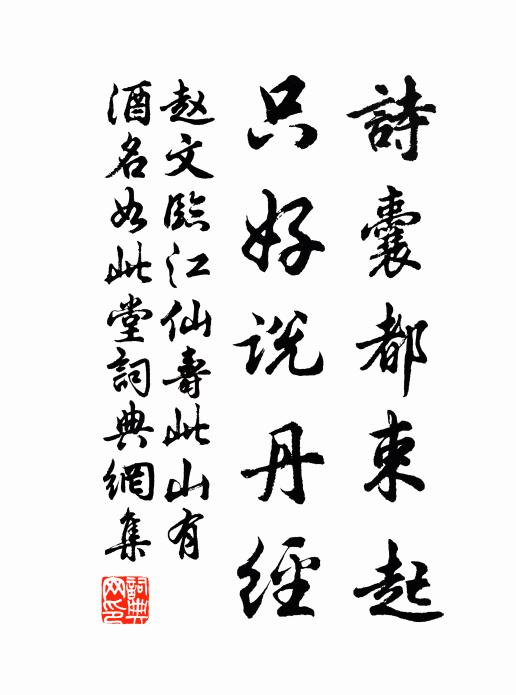 詩囊都束起
只好说丹經
赵文臨江仙壽此山有
酒名如此堂詞典網集
詞典網印